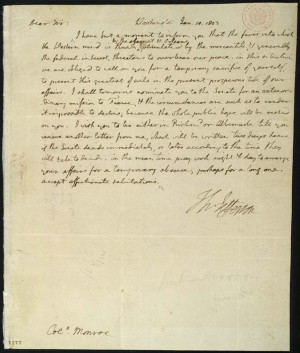 Dear Sir Washington Jan. 10. 1803.
I have but a moment to inform you that the fever into which
by the affair of N. Orleans
the Western mind is thrown stimulated by the mercantile, & generally
the federal interest, threatens to overbear our peace. in this situation
we are obliged to call on you for a temporary sacrifice of yourself,
to prevent this greatest of evils in the present prosperous tide of our
affairs. I shall tomorrow nominate you to the Senate for an extraor-
dinary mission to France, & the circumstances are such as to render
it impossible to decline; because the whole public hope will be rested
on you. I wish you to be either in Richmd or Albemarle till you
recieve another letter from me, which will be written two days hence
if the Senate decide immediately, or later according to the time they
will take to decide. in the mean time pray work night & day to arrange
your affairs for a temporary absence; perhaps for a long one.
accept affectionate salutations.
Th: Jefferson
Colo. Monroe